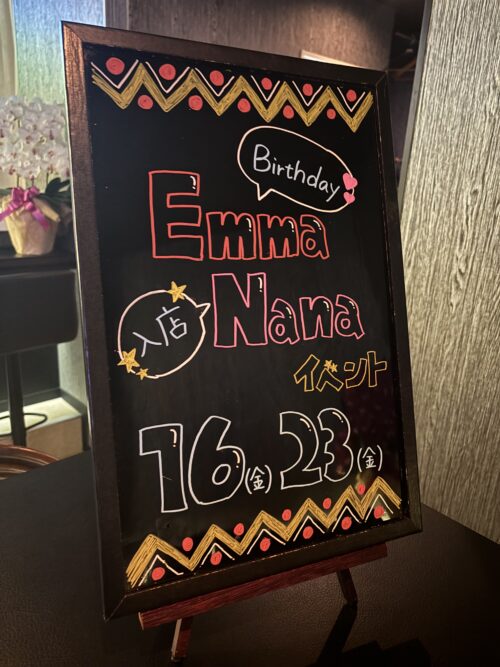 Birthday
Emma
入店
Nana
イベント
16(金) 23(金)